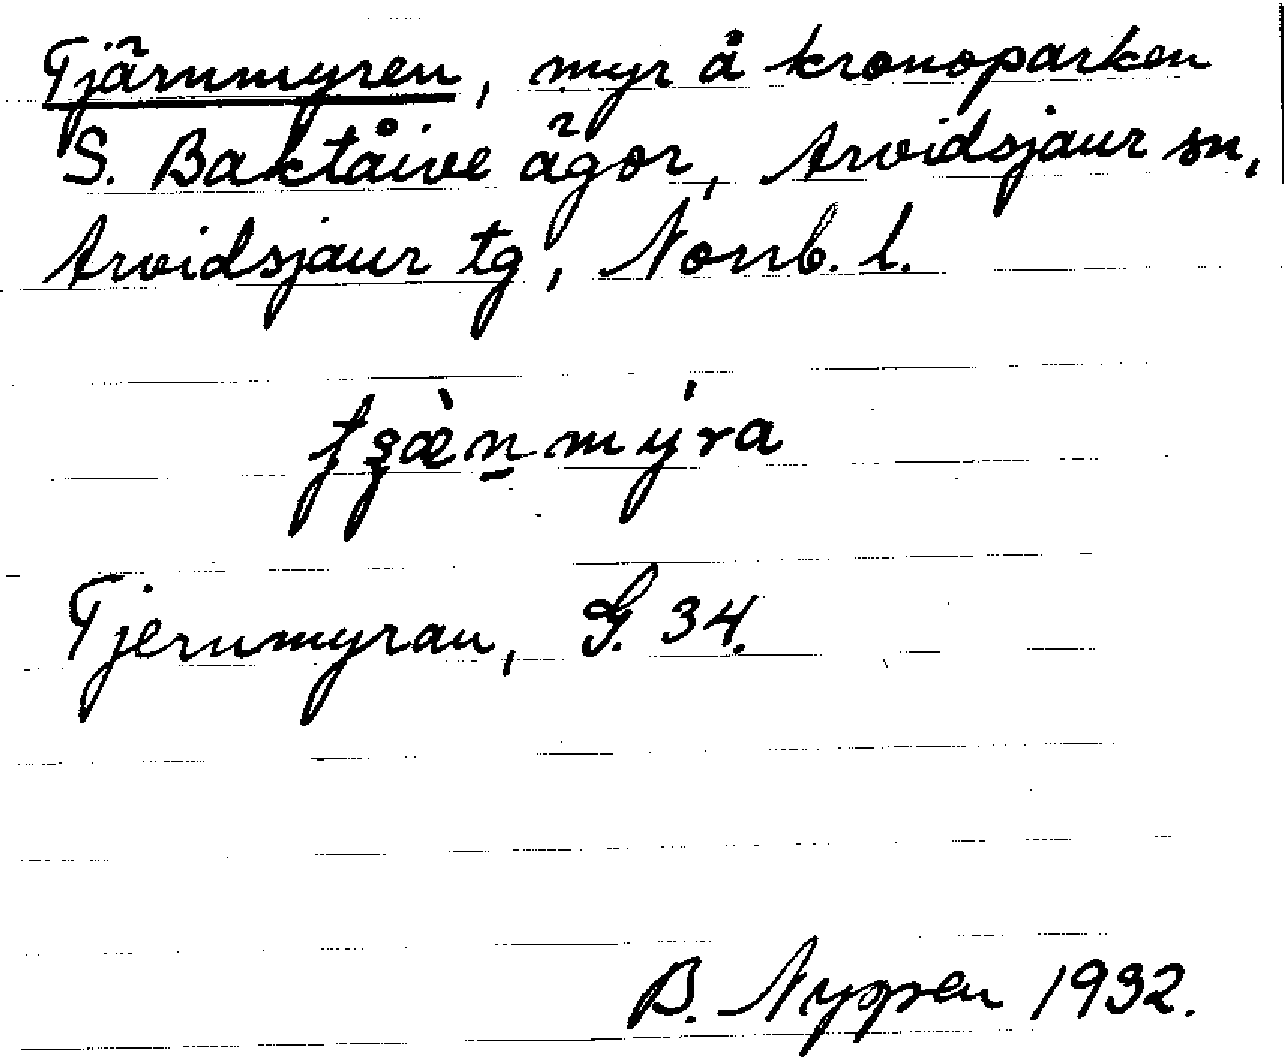 Tjärnmyren, myr å kronoparken
S. Baktåive ägor, Arvidsjaur sn,
Arvidsjaur tg, Norrb. l.
Tjernmyran, G. 34.
B. Nyppen 1932.